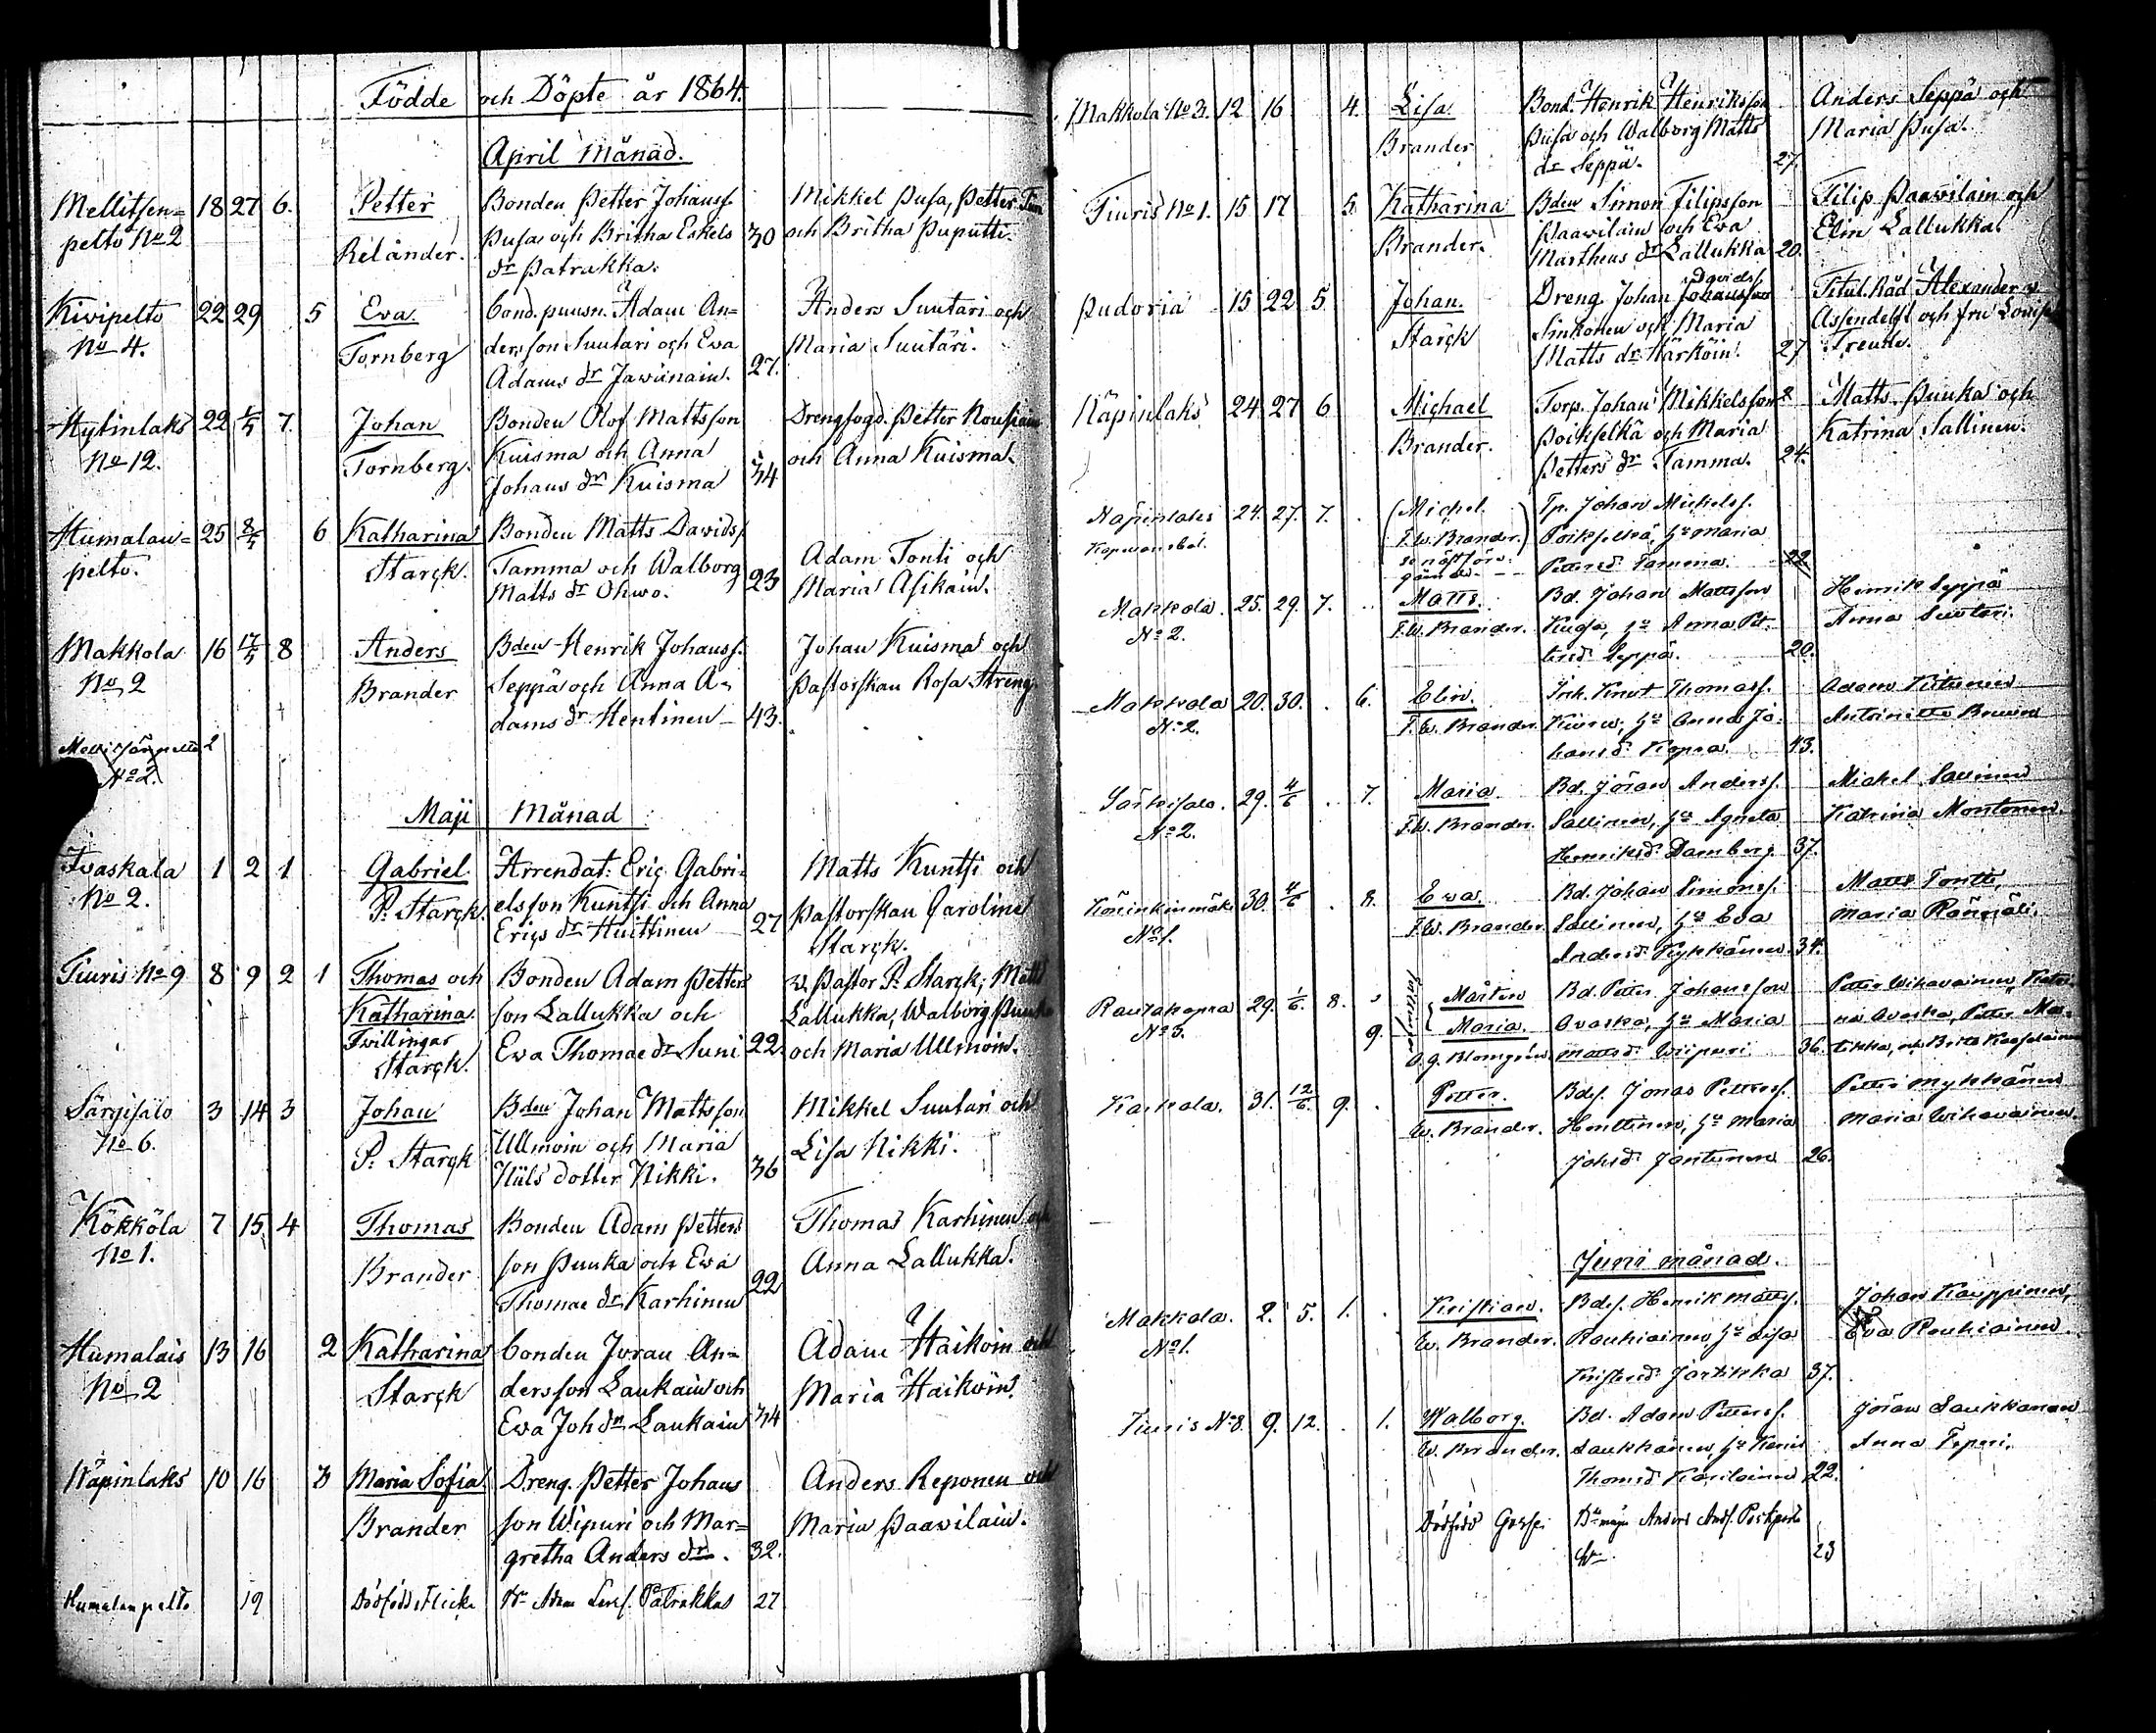 Födde och Döpte år 1864.
April Månad.
Mellitsen= 18 27 6. Petter Bonden Petter Johanss. Mikkel Pusa, Petter
pelto No 2 Relander. Pusa och Britha Eskels 30 och Britha Puputti.
dr Patrakka.
Kivipelto 22 29 5 Eva Bond. Adam An= Anders Suutari och
No 4. Tornberg dersson Suutari och Ewa Maria Suutari.
Adams dr Jawänain. 27.
Hytinlaks 22 1/5 7. Johan Bonden Olof Mattsson Drengfogd. Petter Nousiain
No 12. Tornberg. Kuisma och Anna 34 och Anna Kuisma.
Johans dr Kuisma
Humalan= 25 8/5 6 Katharina Bonden Matts Davids. Adam Tonti och
pelto. Starck. Tamma och Walborg 23 Maria Asikain.
Matts dr Ohwo.
Makkola 16 17/5 8 Anders Bden Henrik Johanss. Johan Kuisma och
No 2 Brander Seppä och Anna A= Pastorskan Rosa Streng.
dams dr Hentinen 43.
No 2.
Maji Månad
Ivaskala 1 2 1 Gabriel Arrendat. Eric Gabri= Matts Kuntsi och
No 2. P. Starck. elsson Kuntsi och Anna 27 Pastorskan Caroline
Erics dr Huittinen Starck.
Tiuris No 9 8 9 2 1 Thomas och Bonden Adam Petters v. Pastor P. Starck, Matts
Katharina son Lallukka och Lallukka, Walborg Puuka
Twillingar Ewa Thomae dr Suni 22. och Maria Ullmoin.
Starck.
Särgisalo 3 14 3 Johan Bden Johan Mattsson Mikkel Suutari och
No 6. P. Starck Ullmoin och Maria Lisa Nikki.
Nils dotter Nikki. 36
Kökköla 7 15 4 Thomas Bonden Adam Petters Thomas Karhinen och
No 1. Brander son Puuka och Ewa 22 Anna Lallukka.
Thomae dr Karhinen
Humalais 13 16 2 Katharina Bonden Juran An= Adam Haikoin och
No 2 Starck dersson Laukain och Maria Haikoin.
Ewa Joh dr Laukain 34
Näpinlaks 10 16 3 Maria Sofia. Dreng. Petter Johans Anders Reponen och
Brander son Wipuri och Mar= Maria Paavilain.
gretha Anders dr. 32.
Humalanpelto 19 Dödfödd flicka Dr Adam Patrakkas 27
Makkola No 3. 12 16 4. Lisa. Bond. Henrik Henriksson Anders Seppä och
Brander Pusa och Walborg Matts Maria Pusa.
dr Seppä. 27.
Tiuris No 1. 15 17 5 Katharina Bden Simon Filipsson Filip Paawilain och
Brander. Paawilain och Ewa Elin Lallukka.
Martheus dr Lallukka 20.
Davids.
Pudoria 15 22 5 Johan. Dreng Johan Johansson Titul. Råd Alexander v.
Starck Sinkonen och Maria Assendelft och fru Lovisa
Matts dr Härköin. 27 Freund.
Näpinlaks 24 27 6 Michael Torp. Johan Mikkelson Matts Puuka och
Brander. Poikselkä och Maria Katrina Sallinen.
Petters dr Tamma. 24.
Näpinlaks 24. 27. 7. (Michel. Tp. Johan Mickels.
F.W. Brander.) Poikselkä, hu Maria
Pettersd. Tamma 22
Makkola. 25. 29. 7. Matts. Bd. Johan Mattsson Henrik Seppä
No 2. F.W. Brander. hu Anna Pet= Anna Suutari.
tersd. Seppä. 20.
Makkola 20. 30. 6. Elin. Inh. Knut Thomass. Adam
No 2. F.W. Brander. hu Anna Jo=
hansd. Kopra. 43.
Särkisalo. 29. 4/6 7. Maria Bd. Jöran Anderss. Michel Sallinen
No 2. F.W. Brander. Sallinen, hu Agneta Katrina Montonen.
Henriksd. Damberg 37.
Köninkinmäki 30. 4/6 8. Ewa Bd. Johan Simonss. Matts Tontti,
No 1. F.W. Brander. Sallinen, hu Eva Maria Rännäli.
Andersd. Kykkänen 34.
Rautakopra 29. 1/6. 8. Mårten Bd. Petter Johansson Petter Wihavainen, Katri=
No 5. 9. Maria. Avaska, hu Maria na Avaska, Petter
O.G. Blomgren. Mattsd. Wiipuri. 36.
Karkola. 31. 12/6. 9. Petter. Bds. Jonas Petterss. Petter Mykkänen
W. Brander. Henttinen, hu Maria Maria Wihavainen.
Johsd. Jantunen 26.
Juni månad.
Makkola. 2. 5. 1. Kristian. Bds. Henrik Matts. Johan Kauppinen,
No 1. W. Brander. Rauhiainen, hu Lisa Eva Rauhiainen.
Kristersd. Jartikka 37.
Tiuris No 8. 9. 12. 1. Walborg. Bd. Adam Petterss. Jöran Laukkanen
W. Brander. Laukkanen, hu Anna Teperi.
Thomsd. Karilainen 22.
Dödfödd Gosse Anders 23